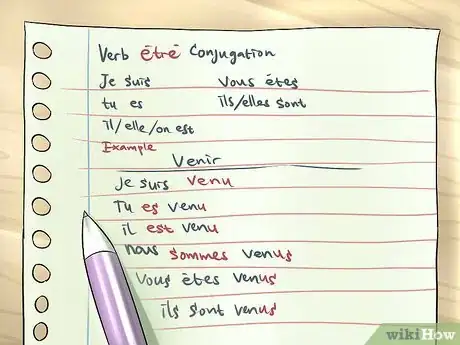 Verb étré Conjugation
Je suis vous êtes
tu es ils/elles sont
il/elle/on est
Example
Venir
Je suis venu
Tu es venu
il est venu
nous sommes venus
Vous êtes venus
ils sont venus
wikiHow